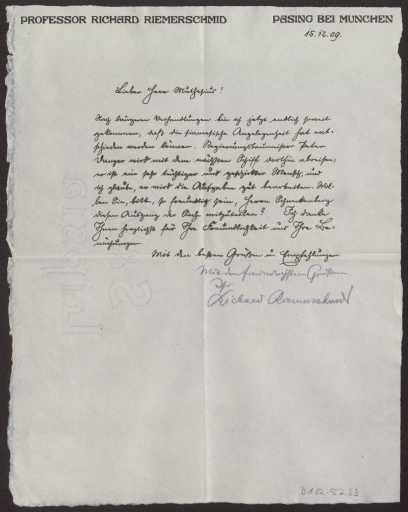 PROFESSOR RICHARD RIEMERSCHMID PASING BEI MÜNCHEN
15.12.09.
Lieber Herr Muthesius!
Nach langen Verhandlungen bin ich jetzt endlich soweit
gekommen, daß die Angelegenheit hat
werden können. Regierungsbaumeister
wird mit dem nächsten Schiff dorthin abreisen,
er ist ein sehr tüchtiger und Mensch, und
ich glaube, er wird die Aufgaben gut bearbeiten. Wol-
len Sie, bitte, so freundlich sein, Herrn
diesen Ausgang der Sache mitzuteilen? Ich danke
Ihnen herzlichst für Ihre Freundlichkeit und Ihre Be-
mühungen.
Mit den besten Grüßen u. Empfehlungen
Mit den freundlichsten Grüßen
Ihr
Richard Riemerschmid